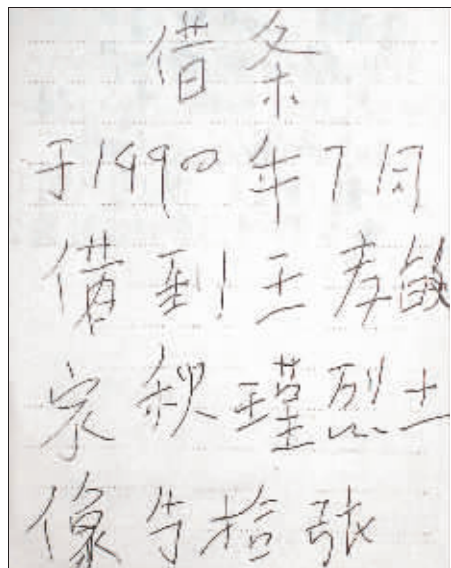 借条
于1990年7月
借到王孝敏
家秋瑾烈士
像片拾张